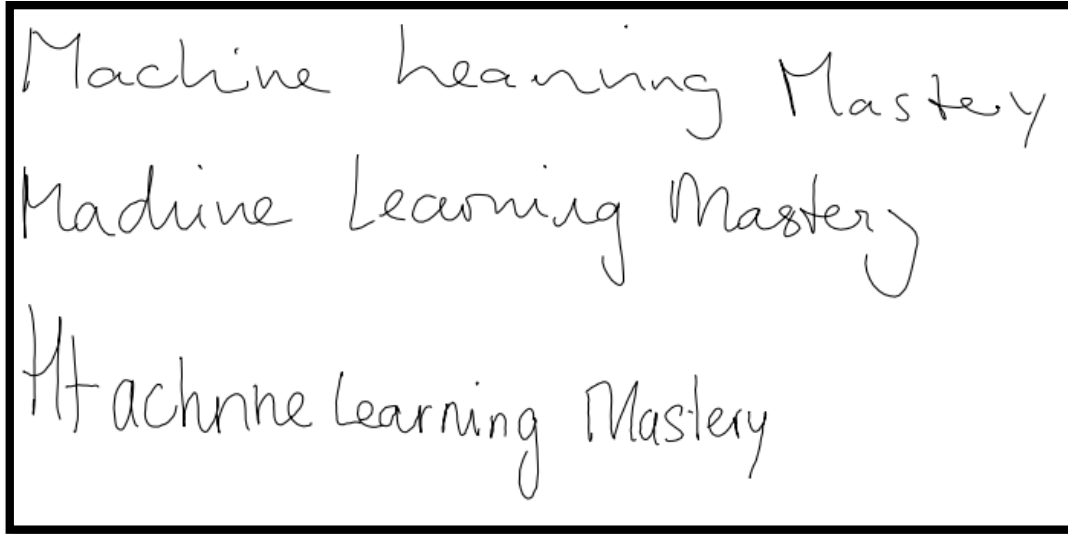 Machine Learning Mastery
Machine Learning Mastery
Mtachnne Learning Mastery